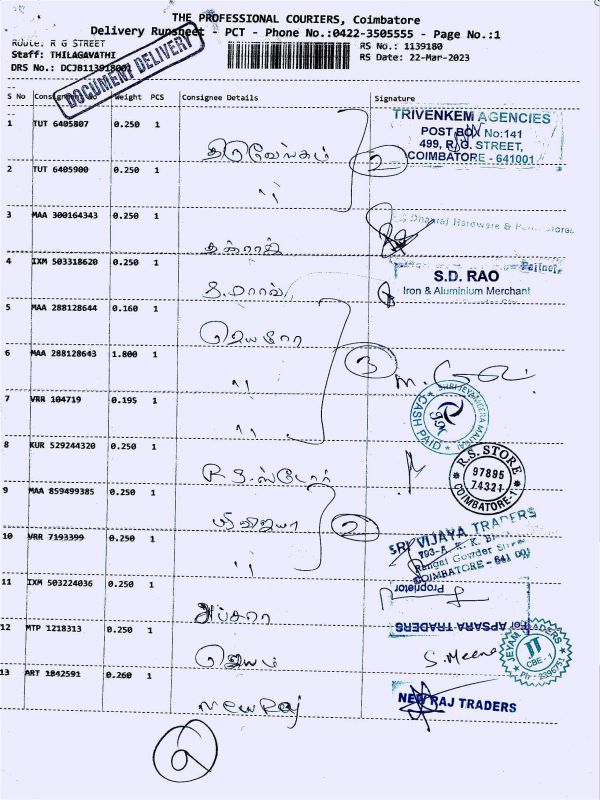 THE PROFESSIONAL COURIERS, Coimbatore
Delivery Runsheet - PCT - Phone No.:0422-3505555 - Page No.:1
Route: R G STREET
RS No.: 1139180
Staff: THILAGAVATHI
RS Date: 22-Mar-2023
DRS No.: DCJB113918001
DOCUMENT DELIVERY
S No Consignment No Weight PCS Consignee Details Signature
1 TUT 6405807 0.250 1
திருவேங்கடம்
TRIVENKEM AGENCIES
POST BOX No:141
499, R.G. STREET,
COIMBATORE - 641001
2
2 TUT 6405900 0.250 1
,,
3 MAA 300164343 0.250 1
Dhanraj Hardware &
4 IXM 503318620 0.250 1
S.D. RAO
Iron & Aluminium Merchant
5 MAA 288128644 0.160 1
3
6 MAA 288128643 1.800 1
,,
7 VRR 104719 0.195 1
,,
CASH PAID
8 KUR 529244320 0.250 1
R.S.ஸ்டோர்
R.S. STORE
97895
74321
COIMBATORE-1
9 MAA 859499385 0.250 1
2
SRI VIJAYA TRADERS
793-A, K. K.
Rangai Gowder Street
COIMBATORE - 641 001
Proprietor
10 VRR 7193399 0.250 1
,,
11 IXM 503224036 0.250 1
அப்சரா
For APSARA TRADERS
12 MTP 1218313 0.250 1
ஜெயம்
S. Meena
JEYAM TRADERS
CBE - 1
13 ART 1842591 0.260 1
New Raj
NEW RAJ TRADERS
9